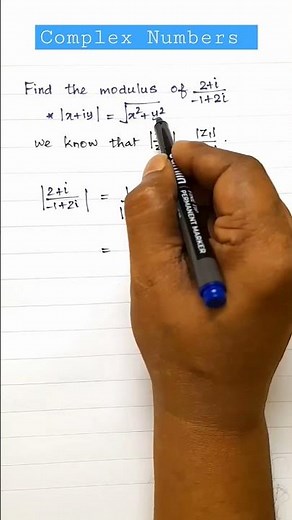 Complex Numbers
Find the modulus of 2+i/-1+2i
* |x+iy| = √x²+y²
we know that | |z₁|
|2+i/-1+2i| =
=
PERMANENT MARKER